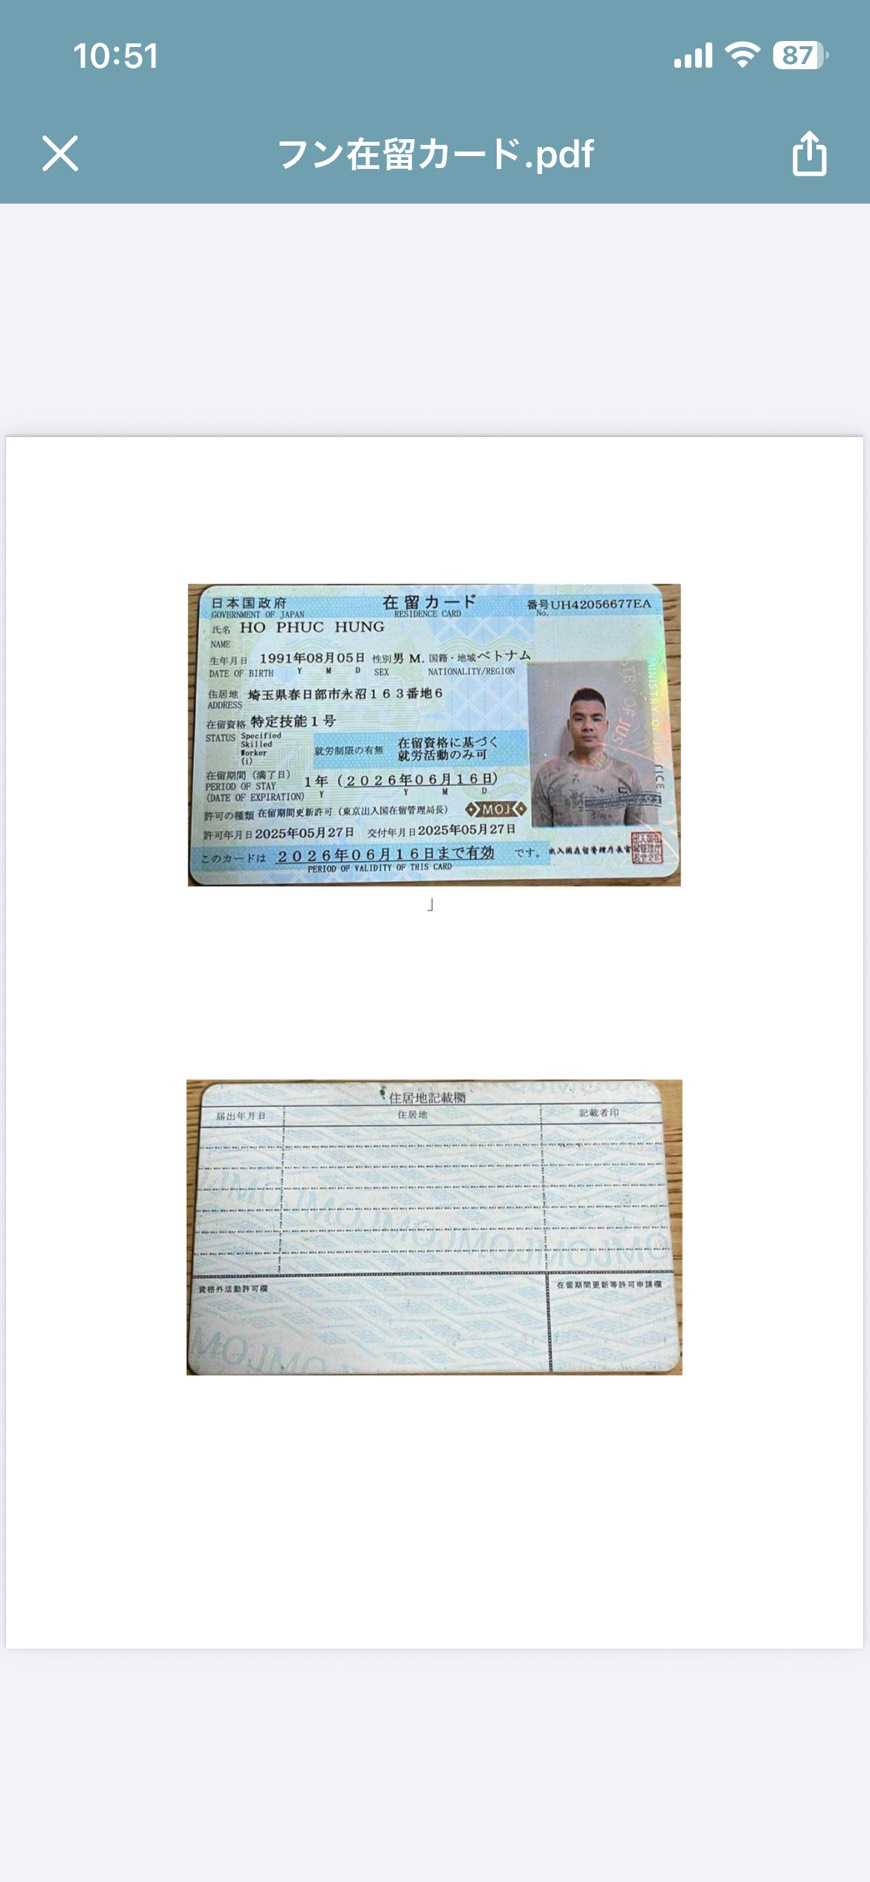 10:51
87
フン在留カード.pdf
日本国政府 在留カード 番号UH42056677EA
GOVERNMENT OF JAPAN RESIDENCE CARD No.
氏名 HO PHUC HUNG
NAME
生年月日 1991年08月05日 性別 男 M. 国籍・地域 ベトナム
DATE OF BIRTH Y M D SEX NATIONALITY/REGION
住居地 埼玉県春日部市永沼163番地6
ADDRESS
在留資格 特定技能1号
STATUS Specified
Skilled
Worker
(i)
就労制限の有無 在留資格に基づく
就労活動のみ可
在留期間(満了日) 1年(2026年06月16日)
PERIOD OF STAY Y Y M D
(DATE OF EXPIRATION)
許可の種類 在留期間更新許可(東京出入国在留管理局長) MOJ
許可年月日 2025年05月27日 交付年月日 2025年05月27日
このカードは 2026年06月16日まで有効 です。 出入国在留管理庁長官
PERIOD OF VALIDITY OF THIS CARD
」
住居地記載欄
届出年月日 住居地 記載者印
MOJMOJMOJMOJMOJMOJ
資格外活動許可欄 在留期間更新等許可申請欄
MOJMOJ